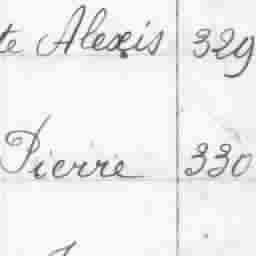 te Alexis 329
Pierre 330